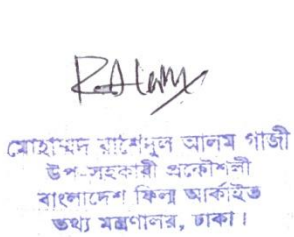 R.Alam
মোহাম্মদ রাশেদুল আলম গাজী
উপ-সহকারী প্রকৌশলী
বাংলাদেশ ফিল্ম আর্কাইভ
তথ্য মন্ত্রণালয়, ঢাকা।